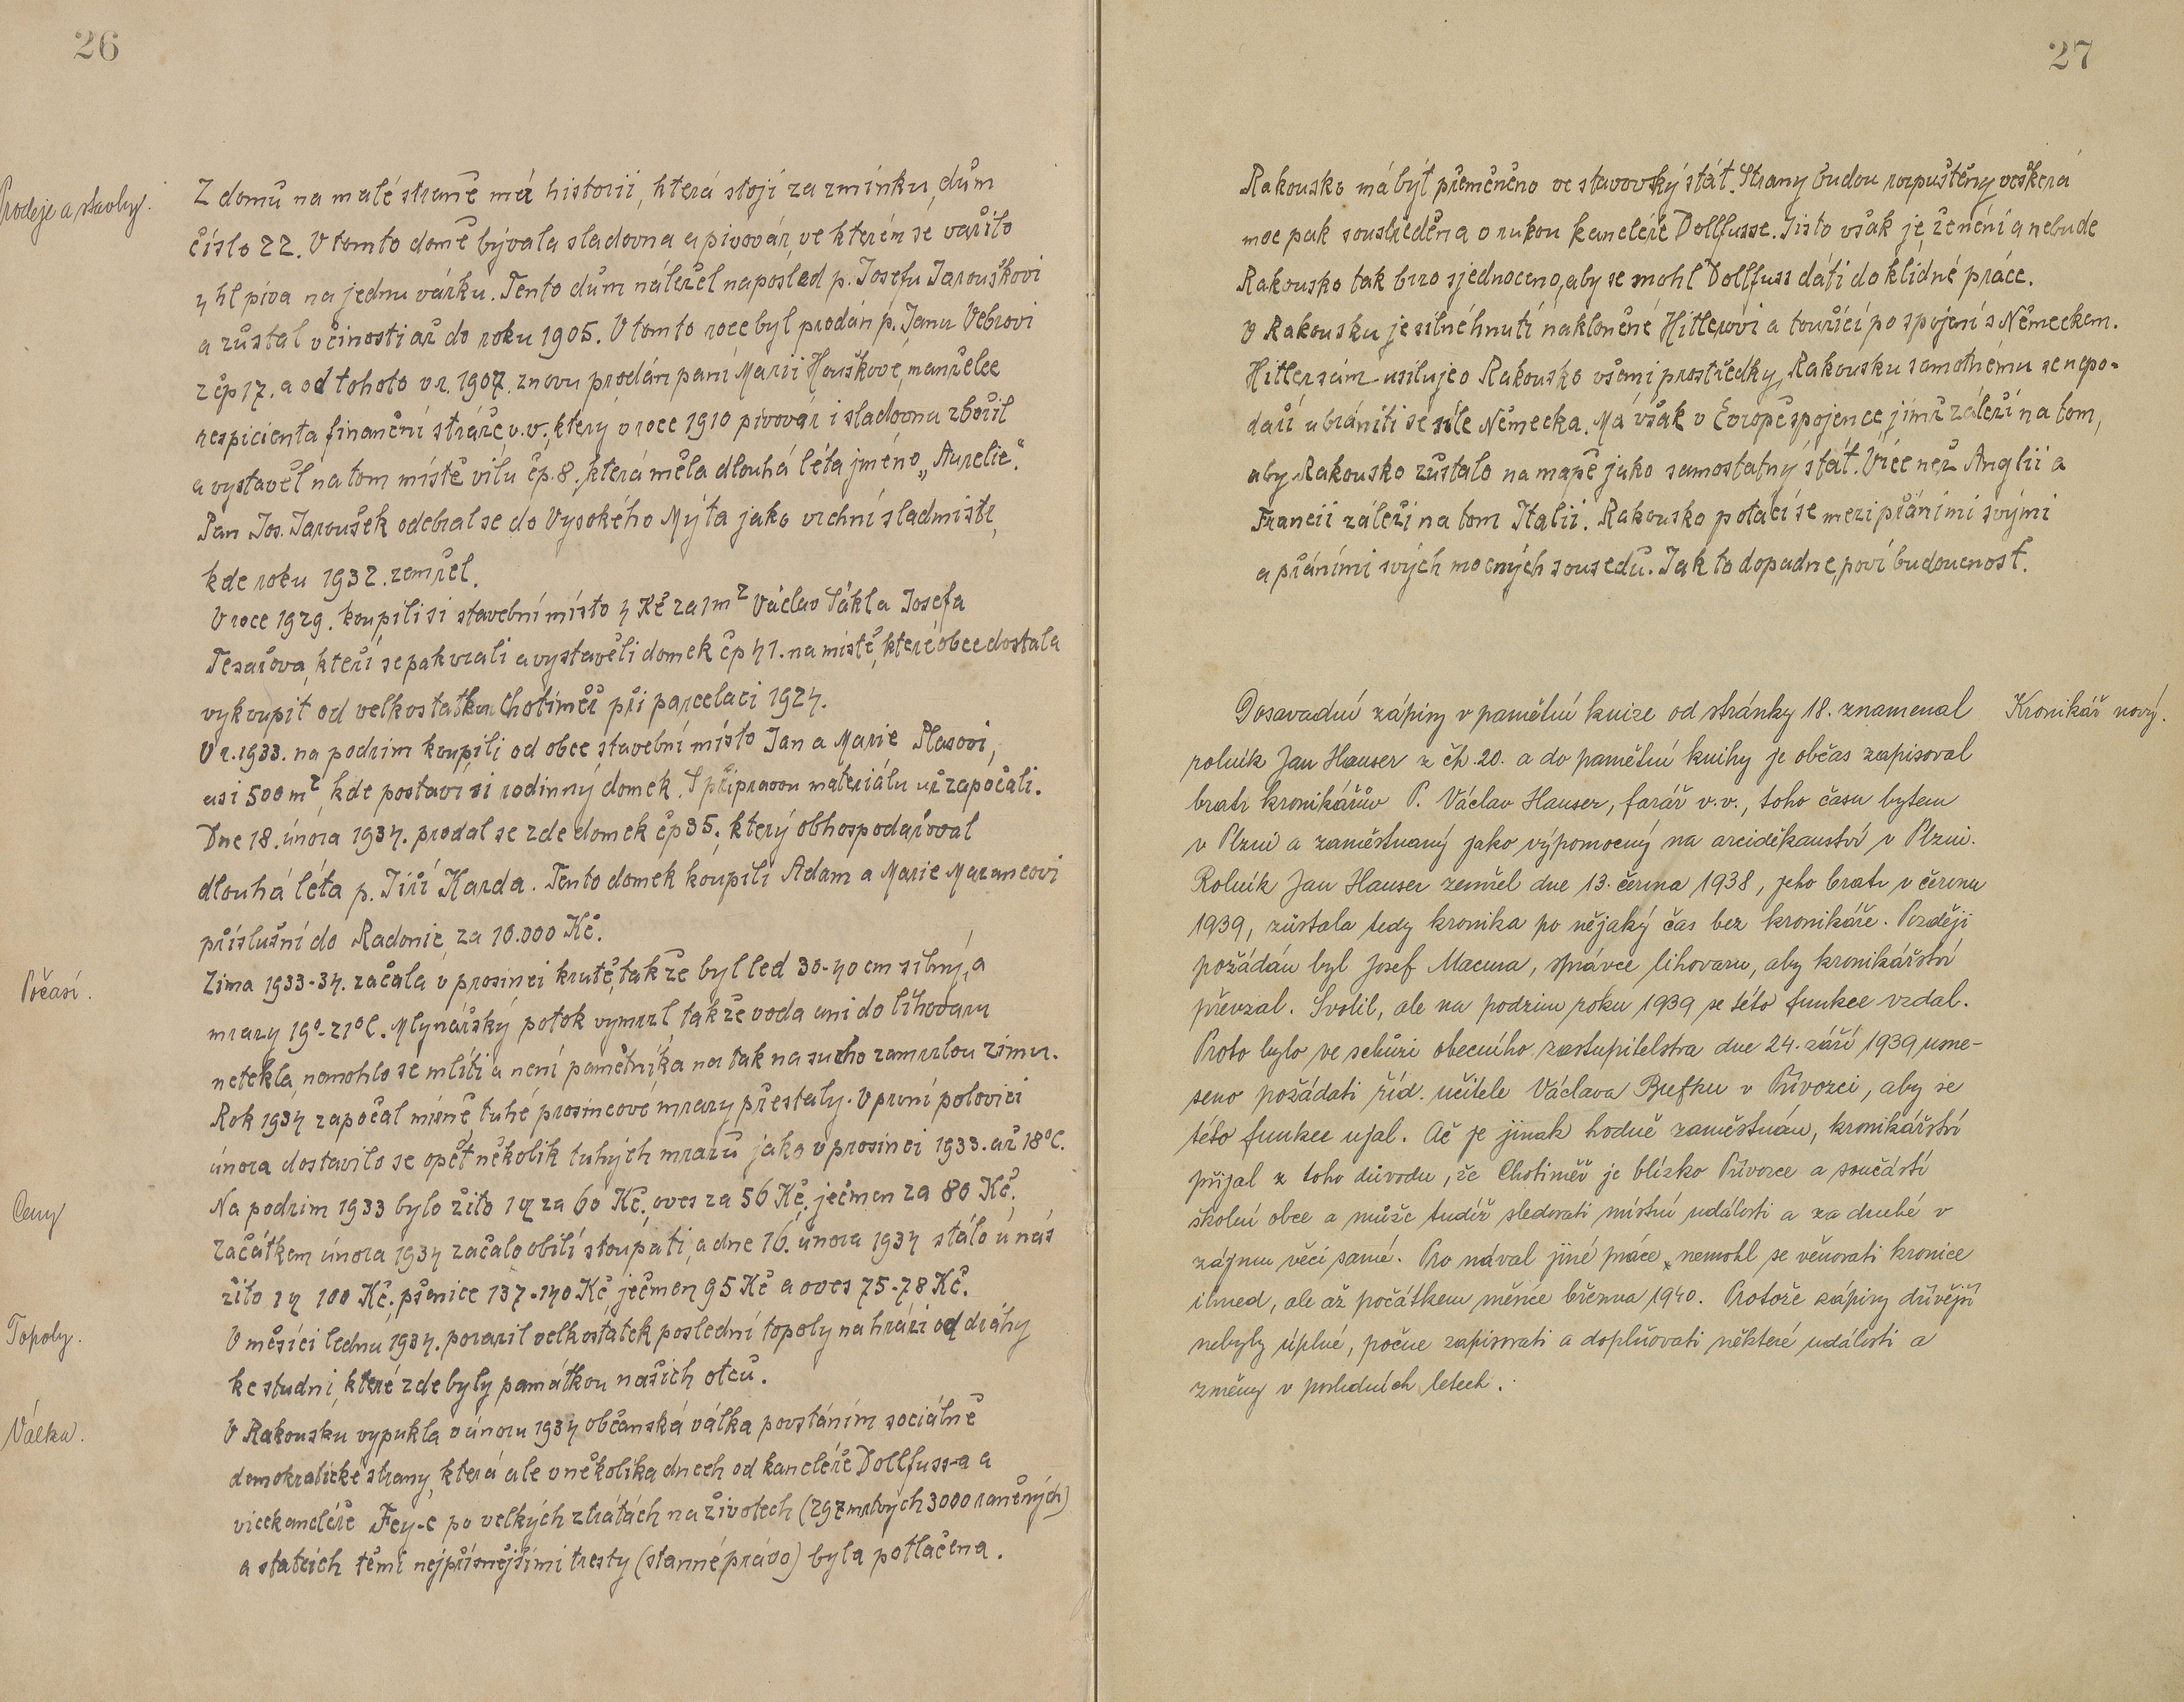 26
Prodeje a stavby.
Z domů na malé straně má historii, která stojí za zmínku, dům
číslo 22. V tomto domě bývala sladovna a pivovár, ve kterém se vařilo
4 hl piva na jednu várku. Tento dům náležel naposled p. Josefu Jarouškovi
a zůstal v činosti až do roku 1905. V tomto roce byl prodán p. Janu Vebrovi
z čp 17. a od tohoto v r. 1907. znovu prodán paní Marii Houškové, manželce
respicienta finanční stráže, v.v., který v roce 1910 pivovár i sladovnu zbořil
a vystavěl na tom místě vilu čp. 8., která měla dlouhá léta jméno „Aurelie“.
Pan Jos. Jaroušek odebral se do Vysokého Mýta jako vrchní sladmistr,
kde roku 1932. zemřel.
V roce 1929. koupili si stavební místo 4 Kč za 1m² Václav Sákl a Josefa
Tesařova, kteří se pak vzali a vystavěli domek čp 41. na místě, které obec dostala
vykoupit od velkostatku Chotiměř při parcelaci 1924.
V r. 1933. na podzim koupili od obce stavební místo Jan a Marie Plasovi,
asi 500 m², kde postaví si rodinný domek. S přípravou materiálu už započali.
Dne 18. února 1934. prodal se zde domek čp 35., který obhospodařoval
dlouhá léta p. Jiří Karda. Tento domek koupili Adam a Marie Maxancovi
příslušní do Radonic, za 10.000 Kč.
Počasí.
Zima 1933-34. začala v prosinci krutě, takže byl led 30-40 cm silný, a
mrazy 19°-21°C. Mlynářský potok vymrzl, takže voda ani do lihovaru
netekla, nemohlo se mlíti a není pamětníka na tak na sucho zamrzlou zimu.
Rok 1934 započal mírně, tuhé prosincové mrazy přestaly. V první polovici
února dostavilo se opět několik tuhých mrazů jako v prosinci 1933. až 18°C.
Ceny
Na podzim 1933 bylo žito 1 q za 60 Kč., oves za 56 Kč., ječmen za 80 Kč.,
Začátkem února 1934 začalo obilí stoupati, a dne 16. února 1934 stálo u nás
žito 1 q 100 Kč., pšenice 137-140 Kč, ječmen 95 Kč a oves 75-78 Kč.
Topoly.
V měsíci lednu 1934. porazil velkostatek poslední topoly na hrázi od dráhy
ke studni, které zde byly památkou našich otců.
Válka.
V Rakousku vypukla v únoru 1934 občanská válka povstáním sociálně
demokratické strany, která ale v několika dnech od kancléře Dollfuss-a a
vicekancléře Fey-e po velkých ztrátách na životech (297 mrtvých 3000 raněných)
a statcích těmi nejpřísnějšími tresty (stanné právo) byla potlačena.
27
Rakousko má být přeměněno ve stavovský stát. Strany budou rozpuštěny veškerá
moc pak soustředěna v rukou kancléře Dollfusse. Jisto však je, že není a nebude
Rakousko tak brzo sjednoceno, aby se mohl Dollfuss dáti do klidné práce.
V Rakousku je silné hnutí nakloněné Hitlerovi a toužící po spojení s Německem.
Hitler sám usiluje o Rakousko všemi prostředky, Rakousku samotnému se nepo-
daří ubrániti se síle Německa. Má však v Evropě spojence, jimž záleží na tom,
aby Rakousko zůstalo na mapě jako samostatný stát. Více než Anglii a
Francii záleží na tom Italii. Rakousko potácí se mezi přáními svými
a přáními svých mocných sousedů. Jak to dopadne, poví budoucnost.
Kronikář nový.
Dosavadní zápisy v pamětní knize od stránky 18. znamenal
rolník Jan Hauser z čh. 20. a do pamětní knihy je občas zapisoval
bratr kronikářův P. Václav Hauser, farář v.v., toho času bytem
v Plzni a zaměstnaný jako výpomocný na arciděkanství v Plzni.
Rolník Jan Hauser zemřel dne 13. června 1938, jeho bratr v červnu
1939, zůstala tedy kronika po nějaký čas bez kronikáře. Později
požádán byl Josef Macura, správce lihovaru, aby kronikářství
převzal. Svolil, ale na podzim roku 1939 se této funkce vzdal.
Proto bylo ve schůzi obecního zastupitelstva dne 24. září 1939 usne-
seno požádati říd. učitele Václava Bufku v Přívozci, aby se
této funkce ujal. Ač je jinak hodně zaměstnán, kronikářství
přijal z toho důvodu, že Chotiměř je blízko Přívozce a součástí
školní obce a může tudíž sledovati místní události a za druhé v
zájmu věci samé. Pro nával jiné práce nemohl se věnovati kronice
ihned, ale až počátkem měsíce března 1940. Protože zápisy dřívější
nebyly úplné, počne zapisovati a doplňovati některé události a
změny v posledních letech.